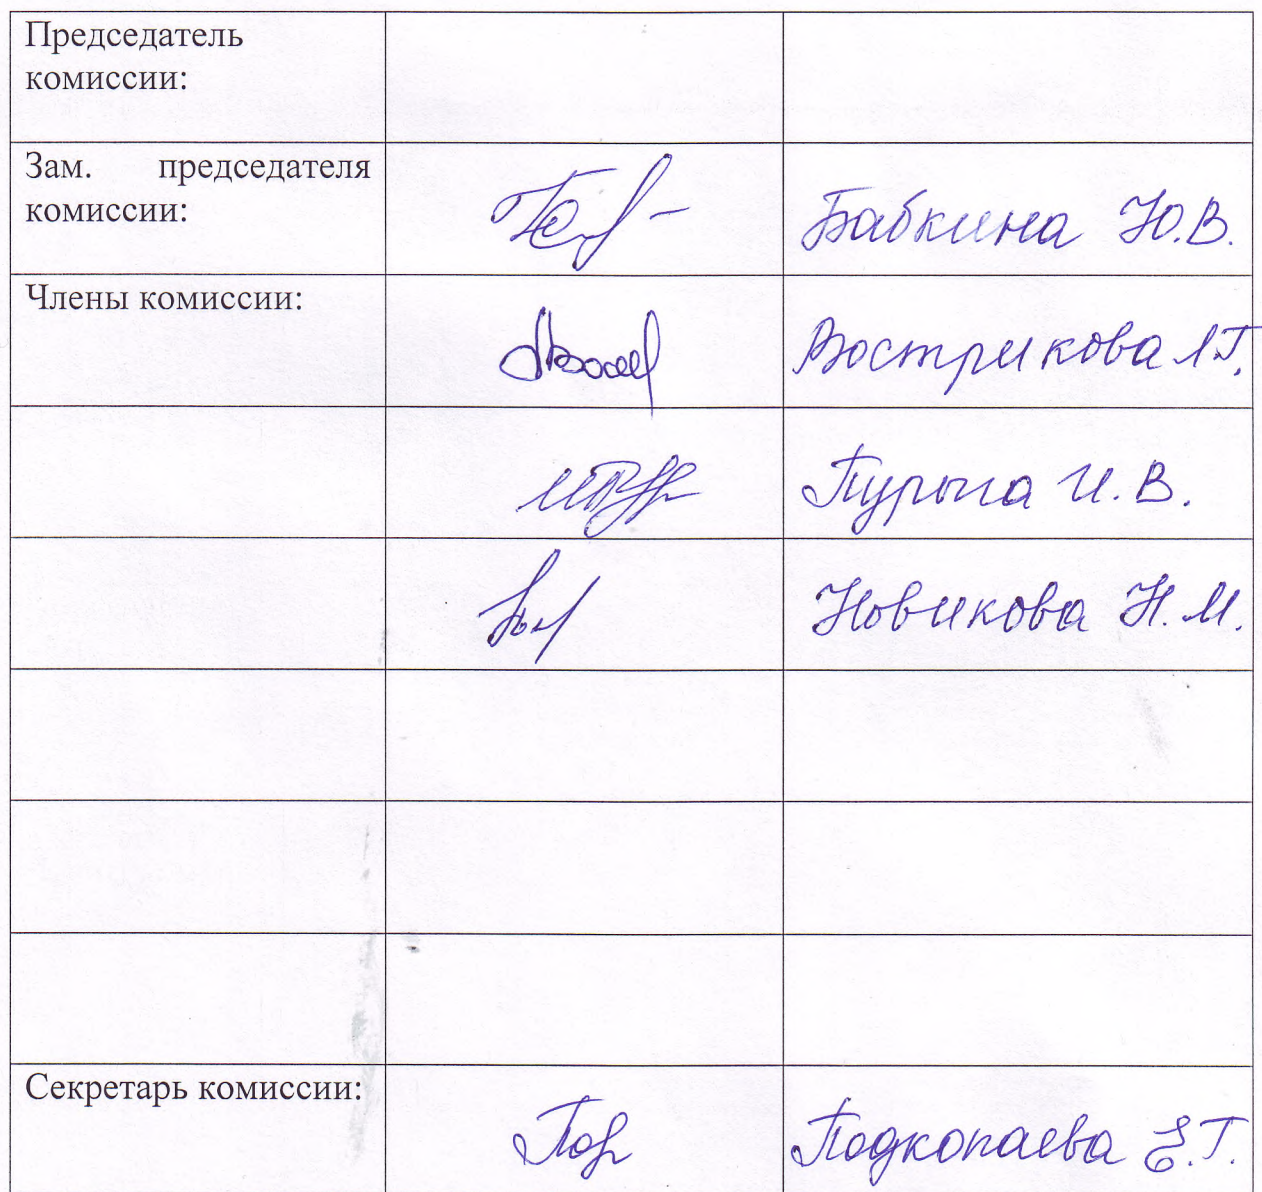 Председатель
комиссии:
Зам. председателя
комиссии:
Бабкина Ю.В.
Члены комиссии:
Вострикова Л.Г.
Пурыга И. В.
Новикова Н. М.
Секретарь комиссии:
Подкопаева Е.Г.